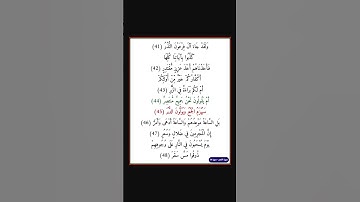 وَلَقَدْ جَاءَ آلَ فِرْعَوْنَ النُّذُرُ (41)
كَذَّبُوا بِآيَاتِنَا كُلِّهَا
فَأَخَذْنَاهُمْ أَخْذَ عَزِيزٍ مُّقْتَدِرٍ (42)
أَكُفَّارُكُمْ خَيْرٌ مِّنْ أُولَٰئِكُمْ
أَمْ لَكُم بَرَاءَةٌ فِي الزُّبُرِ (43)
أَمْ يَقُولُونَ نَحْنُ جَمِيعٌ مُّنتَصِرٌ (44)
سَيُهْزَمُ الْجَمْعُ وَيُوَلُّونَ الدُّبُرَ (45)
بَلِ السَّاعَةُ مَوْعِدُهُمْ وَالسَّاعَةُ أَدْهَىٰ وَأَمَرُّ (46)
إِنَّ الْمُجْرِمِينَ فِي ضَلَالٍ وَسُعُرٍ (47)
يَوْمَ يُسْحَبُونَ فِي النَّارِ عَلَىٰ وُجُوهِهِمْ
ذُوقُوا مَسَّ سَقَرَ (48)